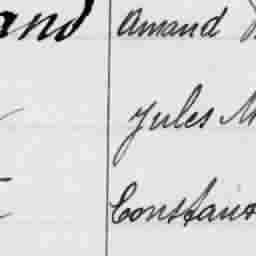 and Amand
Jules M
Constan